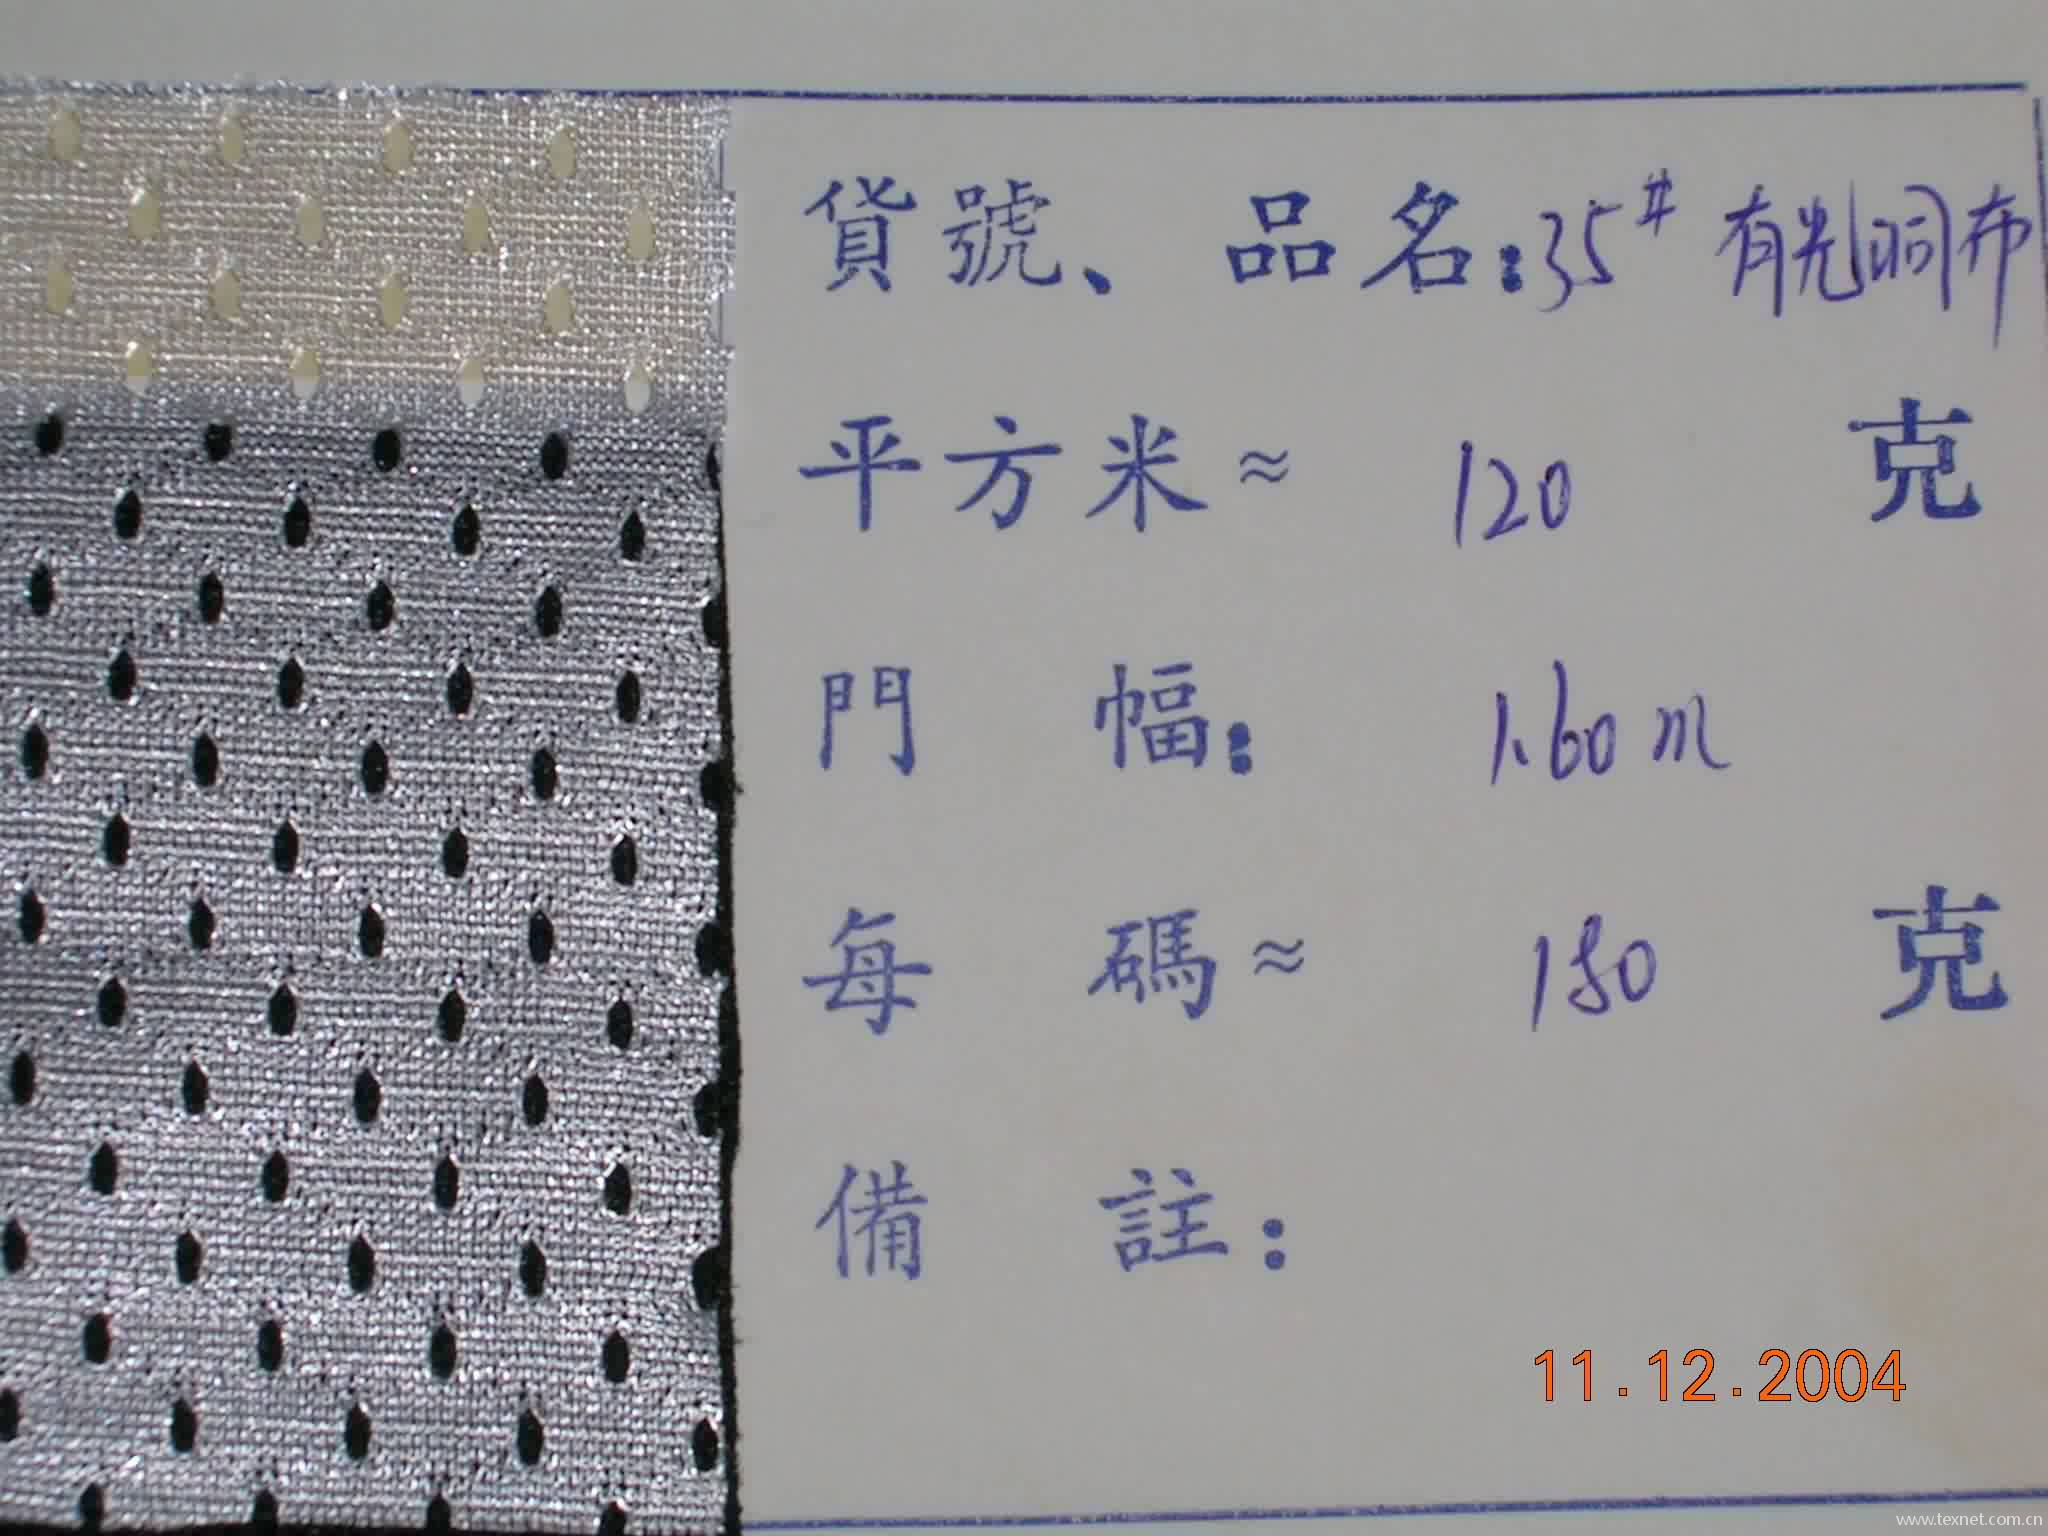 貨號、品名:35# 有光洞布
平方米≈ 120 克
門幅: 1.60m
每碼≈ 180 克
備註:
11.12.2004
www.texnet.com.cn